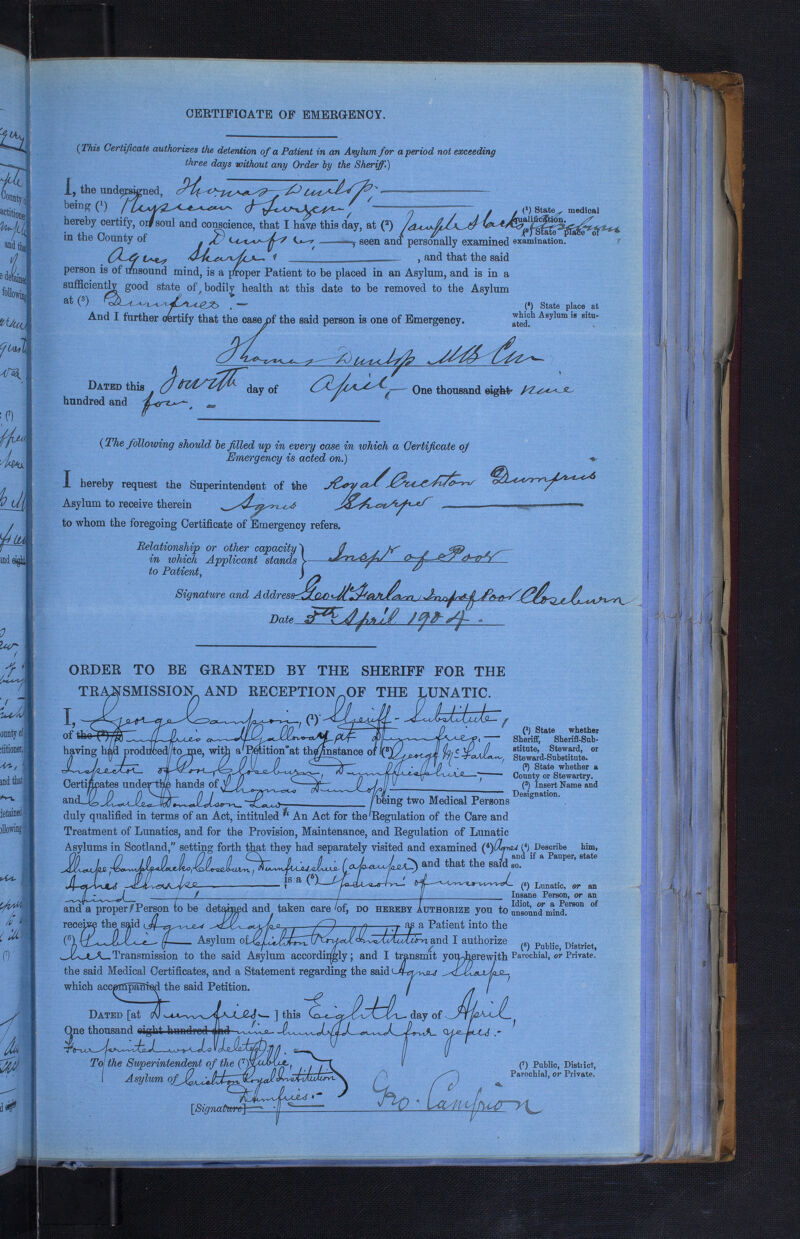 CERTIFICATE OF EMERGENCY.
(This Certificate authorizes the detention of a Patient in an Asylum for a period not exceeding
three days without any Order by the Sheriff.)
I, the undersigned, Thomas Dunlop
being (¹) Physician & Surgeon,
hereby certify, on soul and conscience, that I have this day, at (²) Cample Slacks Closeburn
in the County of Dumfries, seen and personally examined
Agnes Sharpe, and that the said
person is of unsound mind, is a proper Patient to be placed in an Asylum, and is in a
sufficiently good state of bodily health at this date to be removed to the Asylum
at (³) Dumfries.
And I further certify that the case of the said person is one of Emergency.
(¹) State medical
qualification.
(²) State place of
examination.
(³) State place at
which Asylum is situ-
ated.
Thomas Dunlop MB Cm
DATED this Fourth day of April One thousand eight nine
hundred and four.
(The following should be filled up in every case in which a Certificate of
Emergency is acted on.)
I hereby request the Superintendent of the Royal Crichton Dumfries
Asylum to receive therein Agnes Sharpe
to whom the foregoing Certificate of Emergency refers.
Relationship or other capacity
in which Applicant stands
to Patient,
Inspr of Poor
Signature and Address Geo McFarlan Insp of Poor Closeburn
Date 5th April 1904.
ORDER TO BE GRANTED BY THE SHERIFF FOR THE
TRANSMISSION AND RECEPTION OF THE LUNATIC.
I, George Campion, (¹) Sheriff-Substitute,
of the (²) Dumfries and Galloway at Dumfries,
having had produced to me, with a Petition at the instance of (³) George McFarlan,
Inspector of Poor, Closeburn, Dumfriesshire,
Certificates under the hands of Thomas Dunlop
and Charles Donaldson Law being two Medical Persons
duly qualified in terms of an Act, intituled "An Act for the Regulation of the Care and
Treatment of Lunatics, and for the Provision, Maintenance, and Regulation of Lunatic
Asylums in Scotland," setting forth that they had separately visited and examined (⁴) Agnes
Sharpe, Campleslacks, Closeburn, Dumfriesshire (a pauper) and that the said
Agnes Sharpe is a (⁵) person of unsound
mind,
and a proper Person to be detained and taken care of, DO HEREBY AUTHORIZE YOU to
receive the said Agnes Sharpe as a Patient into the
(⁶) Public Asylum of Crichton Royal Institution and I authorize
her Transmission to the said Asylum accordingly; and I transmit you herewith
the said Medical Certificates, and a Statement regarding the said Agnes Sharpe,
which accompanied the said Petition.
(¹) State whether
Sheriff, Sheriff-Sub-
stitute, Steward, or
Steward-Substitute.
(²) State whether a
County or Stewartry.
(³) Insert Name and
Designation.
(⁴) Describe him,
and if a Pauper, state
so.
(⁵) Lunatic, or an
Insane Person, or an
Idiot, or a Person of
unsound mind.
(⁶) Public, District,
Parochial, or Private.
DATED [at Dumfries] this Eighth day of April,
One thousand eight hundred and nine hundred and four years.
Four printed words deleted.
To the Superintendent of the (⁷) Public,
Asylum of Crichton Royal Institution
Dumfries.
(⁷) Public, District,
Parochial, or Private.
[Signature] Geo. Campion